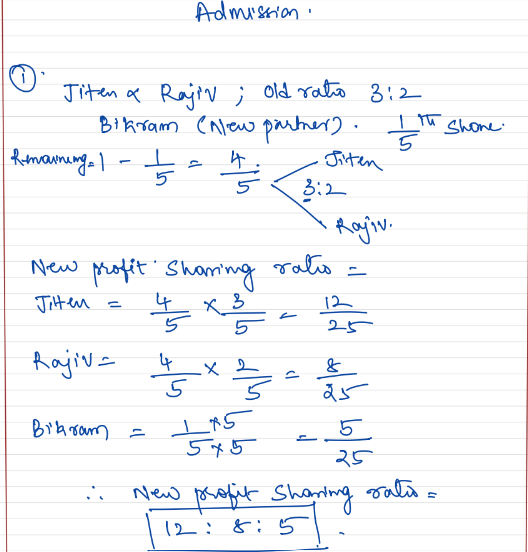 Admission.
①. Jiten & Rajiv ; old ratio 3:2
Bikram (New partner). 1/5 th share.
Remaining = 1 - 1/5 = 4/5 Jiten
3:2
Rajiv.
New profit sharing ratio =
Jiten = 4/5 × 3/5 = 12/25
Rajiv = 4/5 × 2/5 = 8/25
Bikram = 1×5/5×5 = 5/25
∴ New profit sharing ratio =
12 : 8 : 5.